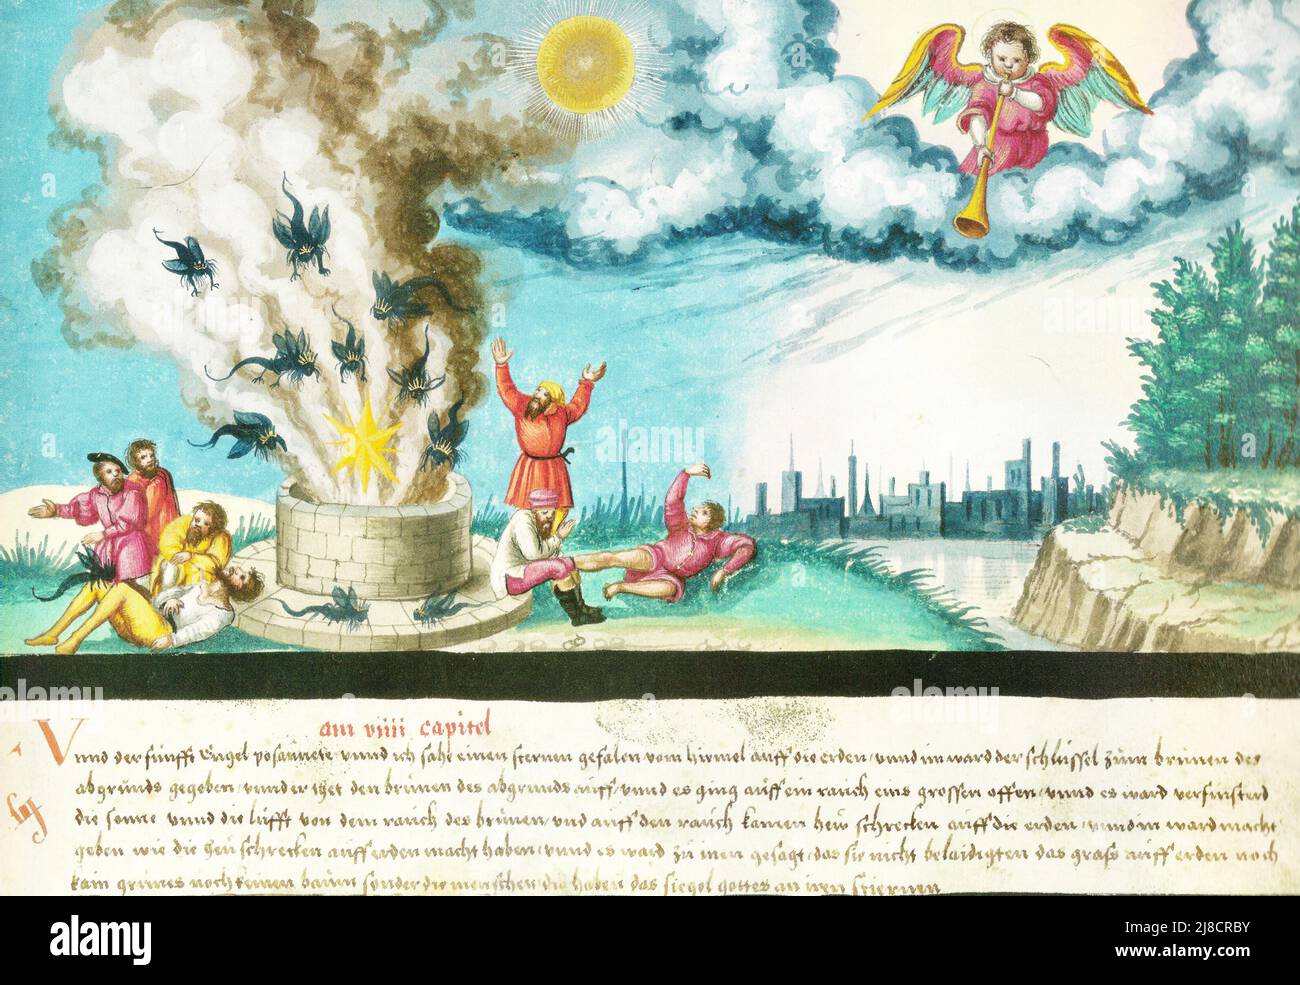 am viiii capitel
Vnnd der fünfft Engel posaunete vnnd ich sahe einen sternen gefalen vom himel auff die erden vnnd im ward der schlüssel zum brünen des
abgrunds gegeben vnnd er thet den brünen des abgrunds auff vnnd es ging auff ein rauch eins grossen offen vnnd es ward verfinsterd
die sonne vnnd die lüfft von dem rauch des brünen vnd auff den rauch kamen hew schrecken auff die erden vnnd in ward macht
geben wie die heuschrecken auff erden macht haben vnnd es ward zu inen gesagt das sie nicht beleidigten das grass auff erden noch
kain grünes noch keinen baum sonder die menschen die haben das siegel gottes an iren stiernen
alamy
Image ID: J8CRBY
www.alamy.com